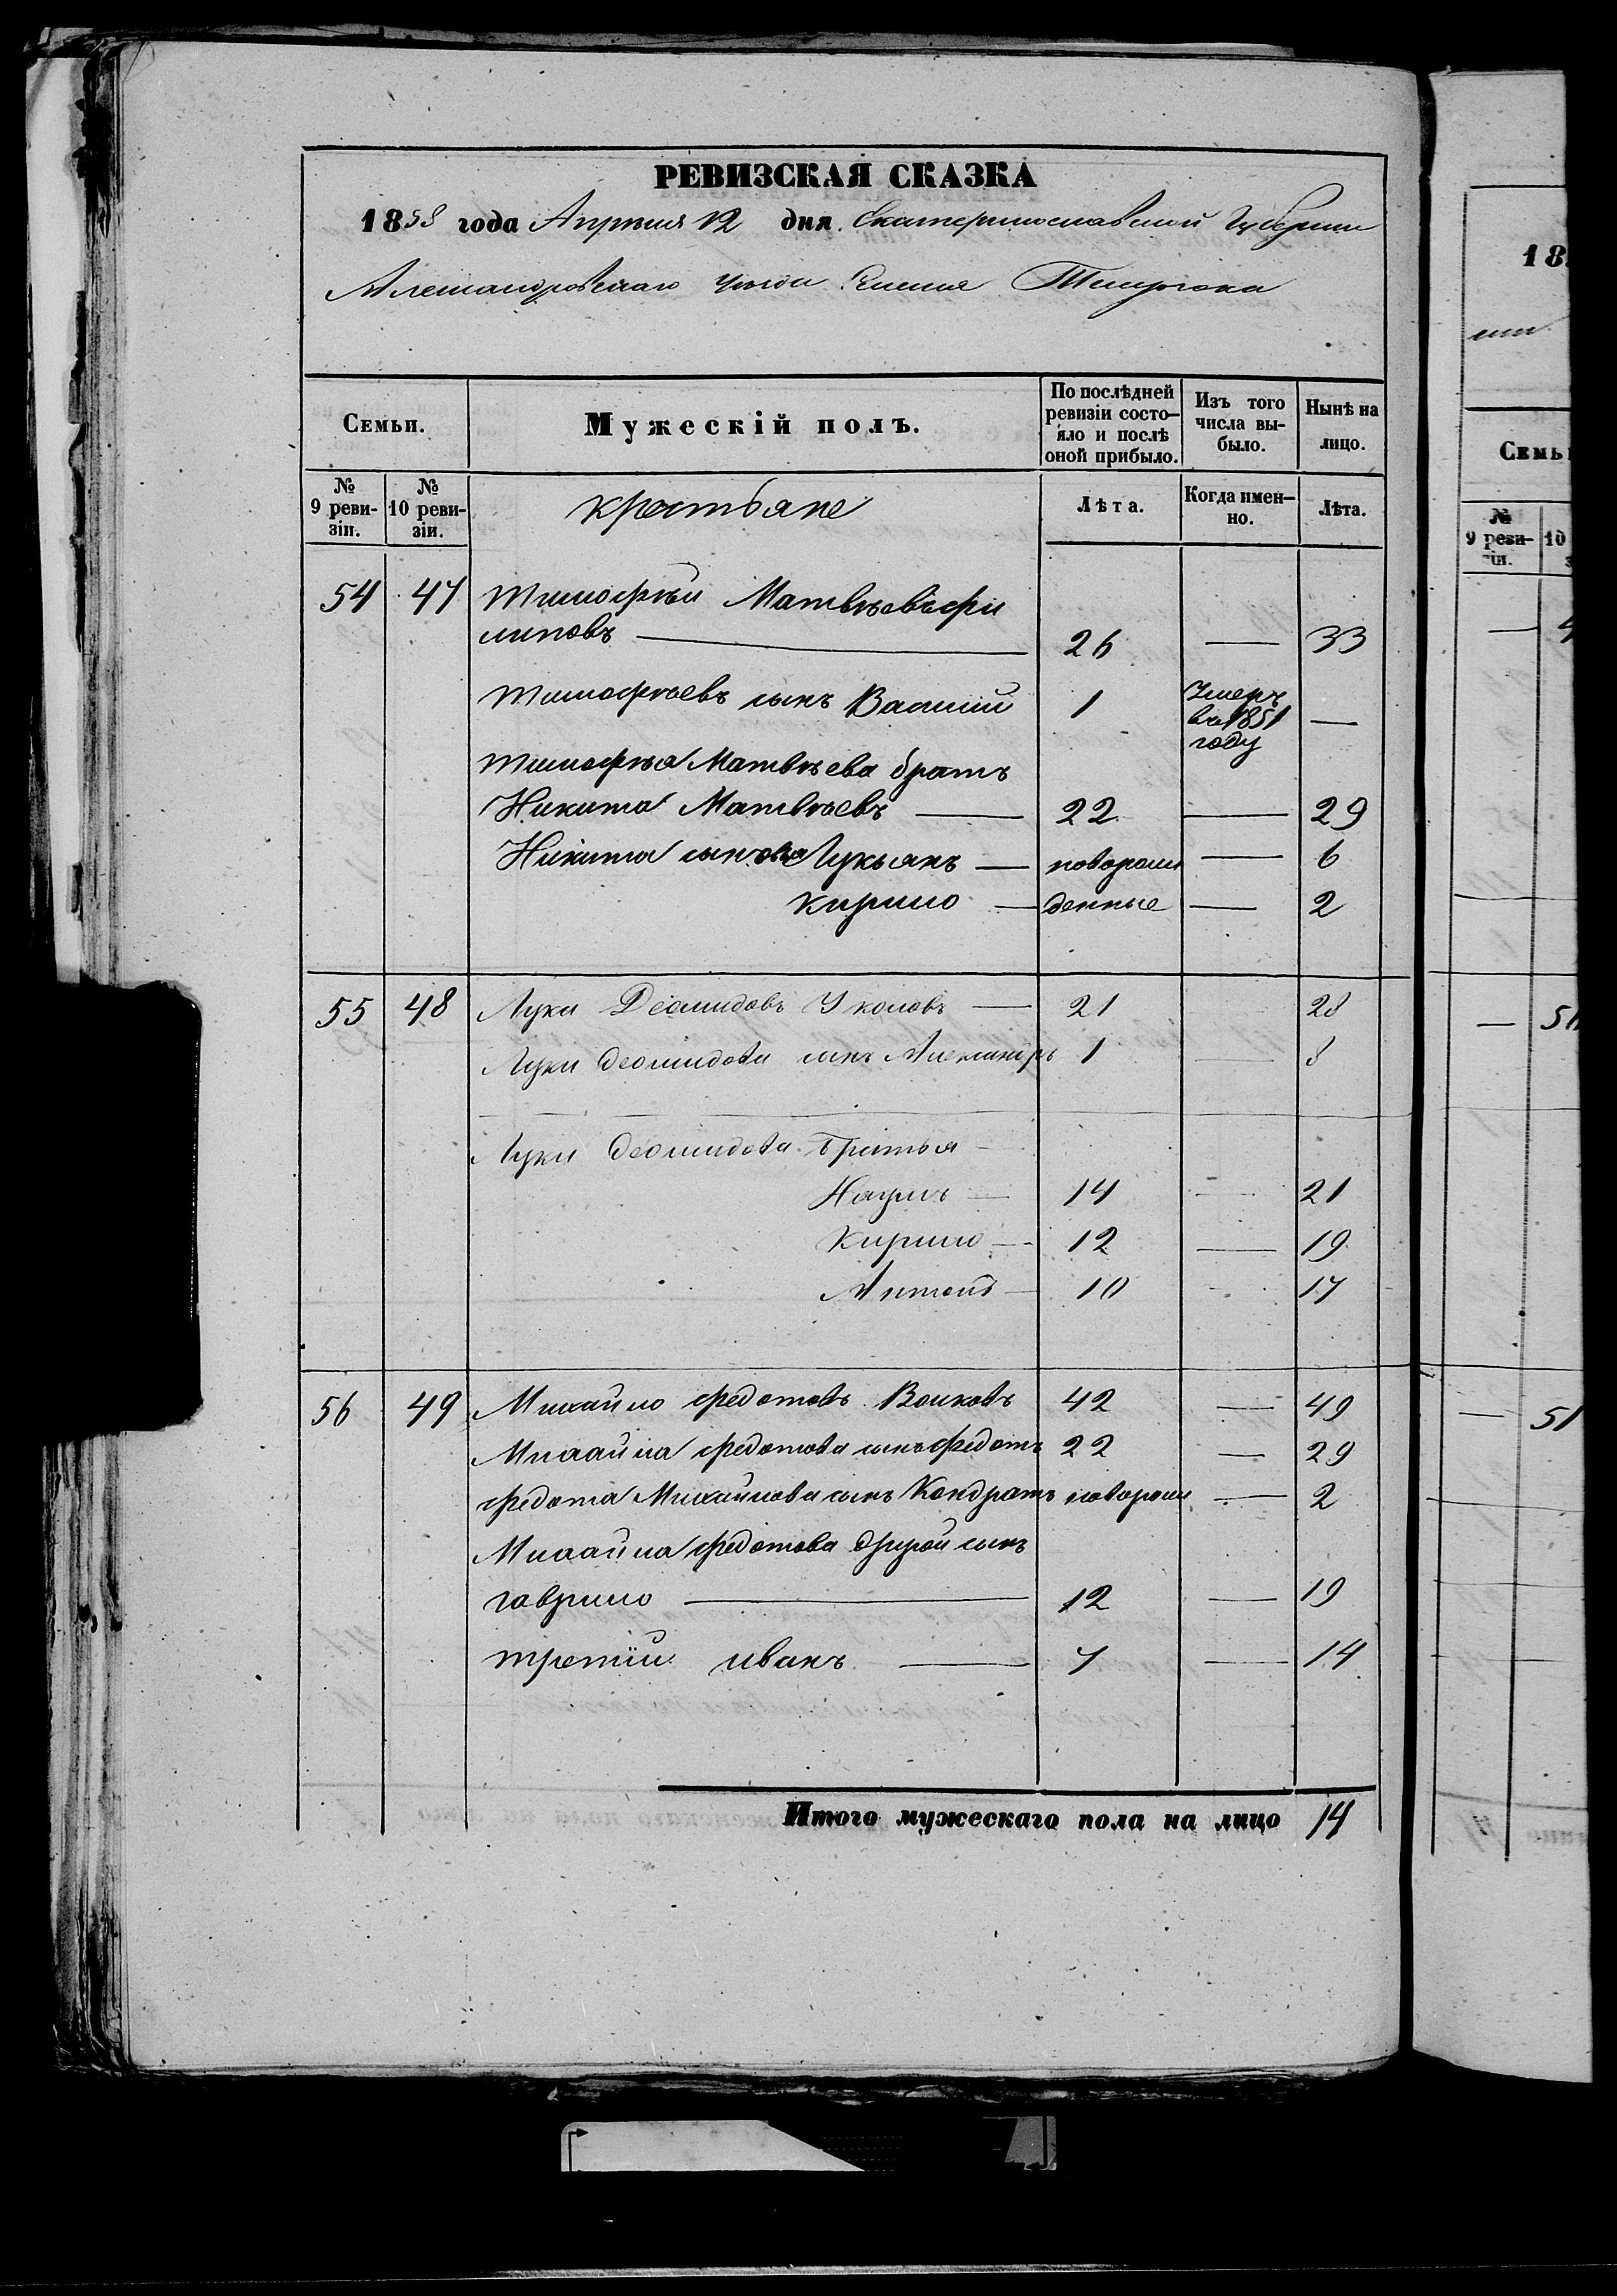 РЕВИЗСКАЯ СКАЗКА
1858 года Апрѣля 12 дня Екатеринославской Губернiи
Александровскаго уѣзда Темрюка
Семьи. Мужескiй полъ. По послѣдней ревизiи состо-яло и послѣ оной прибыло. Изъ того числа вы-было. Нынѣ на лицо.
№ 9 реви-зiи. № 10 реви-зiи. крестьяне Лѣта. Когда имен-но. Лѣта.
54 47 Тимофѣй Матвѣевъ фи
липовъ — 26 — 33
Тимофѣевъ сынъ Василiй 1 Умеръ въ 1851 году —
Тимофѣя Матвѣева братъ
Никита Матвѣевъ — 22 — 29
Никита сыновя Лукьянъ — новорож — 6
Кирило — денные — 2
55 48 Лука Деомидовъ Уколовъ — 21 28
Луки Деомидова сынъ Александръ 1 — 8
Луки Деомидова Братья —
Наумъ — 14 — 21
Кирило — 12 — 19
Антонъ — 10 - 17
56 49 Михайло Федотовъ Волковъ 42 — 49
Михайла Федотова сынъ Федотъ 22 — 29
Федота Михайлова сынъ Кондратъ новорож — 2
Михайла Федотова другой сынъ
гаврило — 12 — 19
третiй иванъ — 7 — 14
Итого мужескаго пола на лицо 14
18
Семь
№ 9 реви-зiи. 10
— 4
— 51
— 51